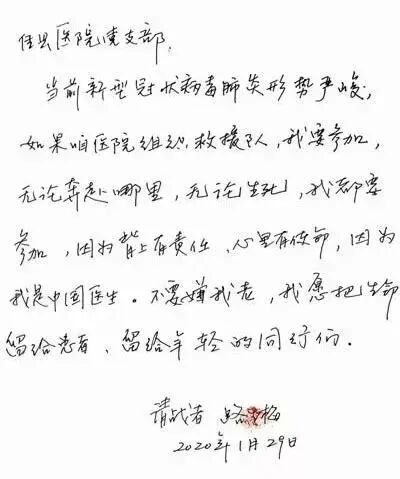 佳县医院党支部，
当前新型冠状病毒肺炎形势严峻，
如果咱医院组织救援队，我要参加，
无论奔赴哪里，无论生死，我都要
参加，因为背上有责任、心里有使命，因为
我是中国医生。不要嫌我老，我愿把生命
留给患者、留给年轻的同行们。
请战者 路 梅
2020年1月29日